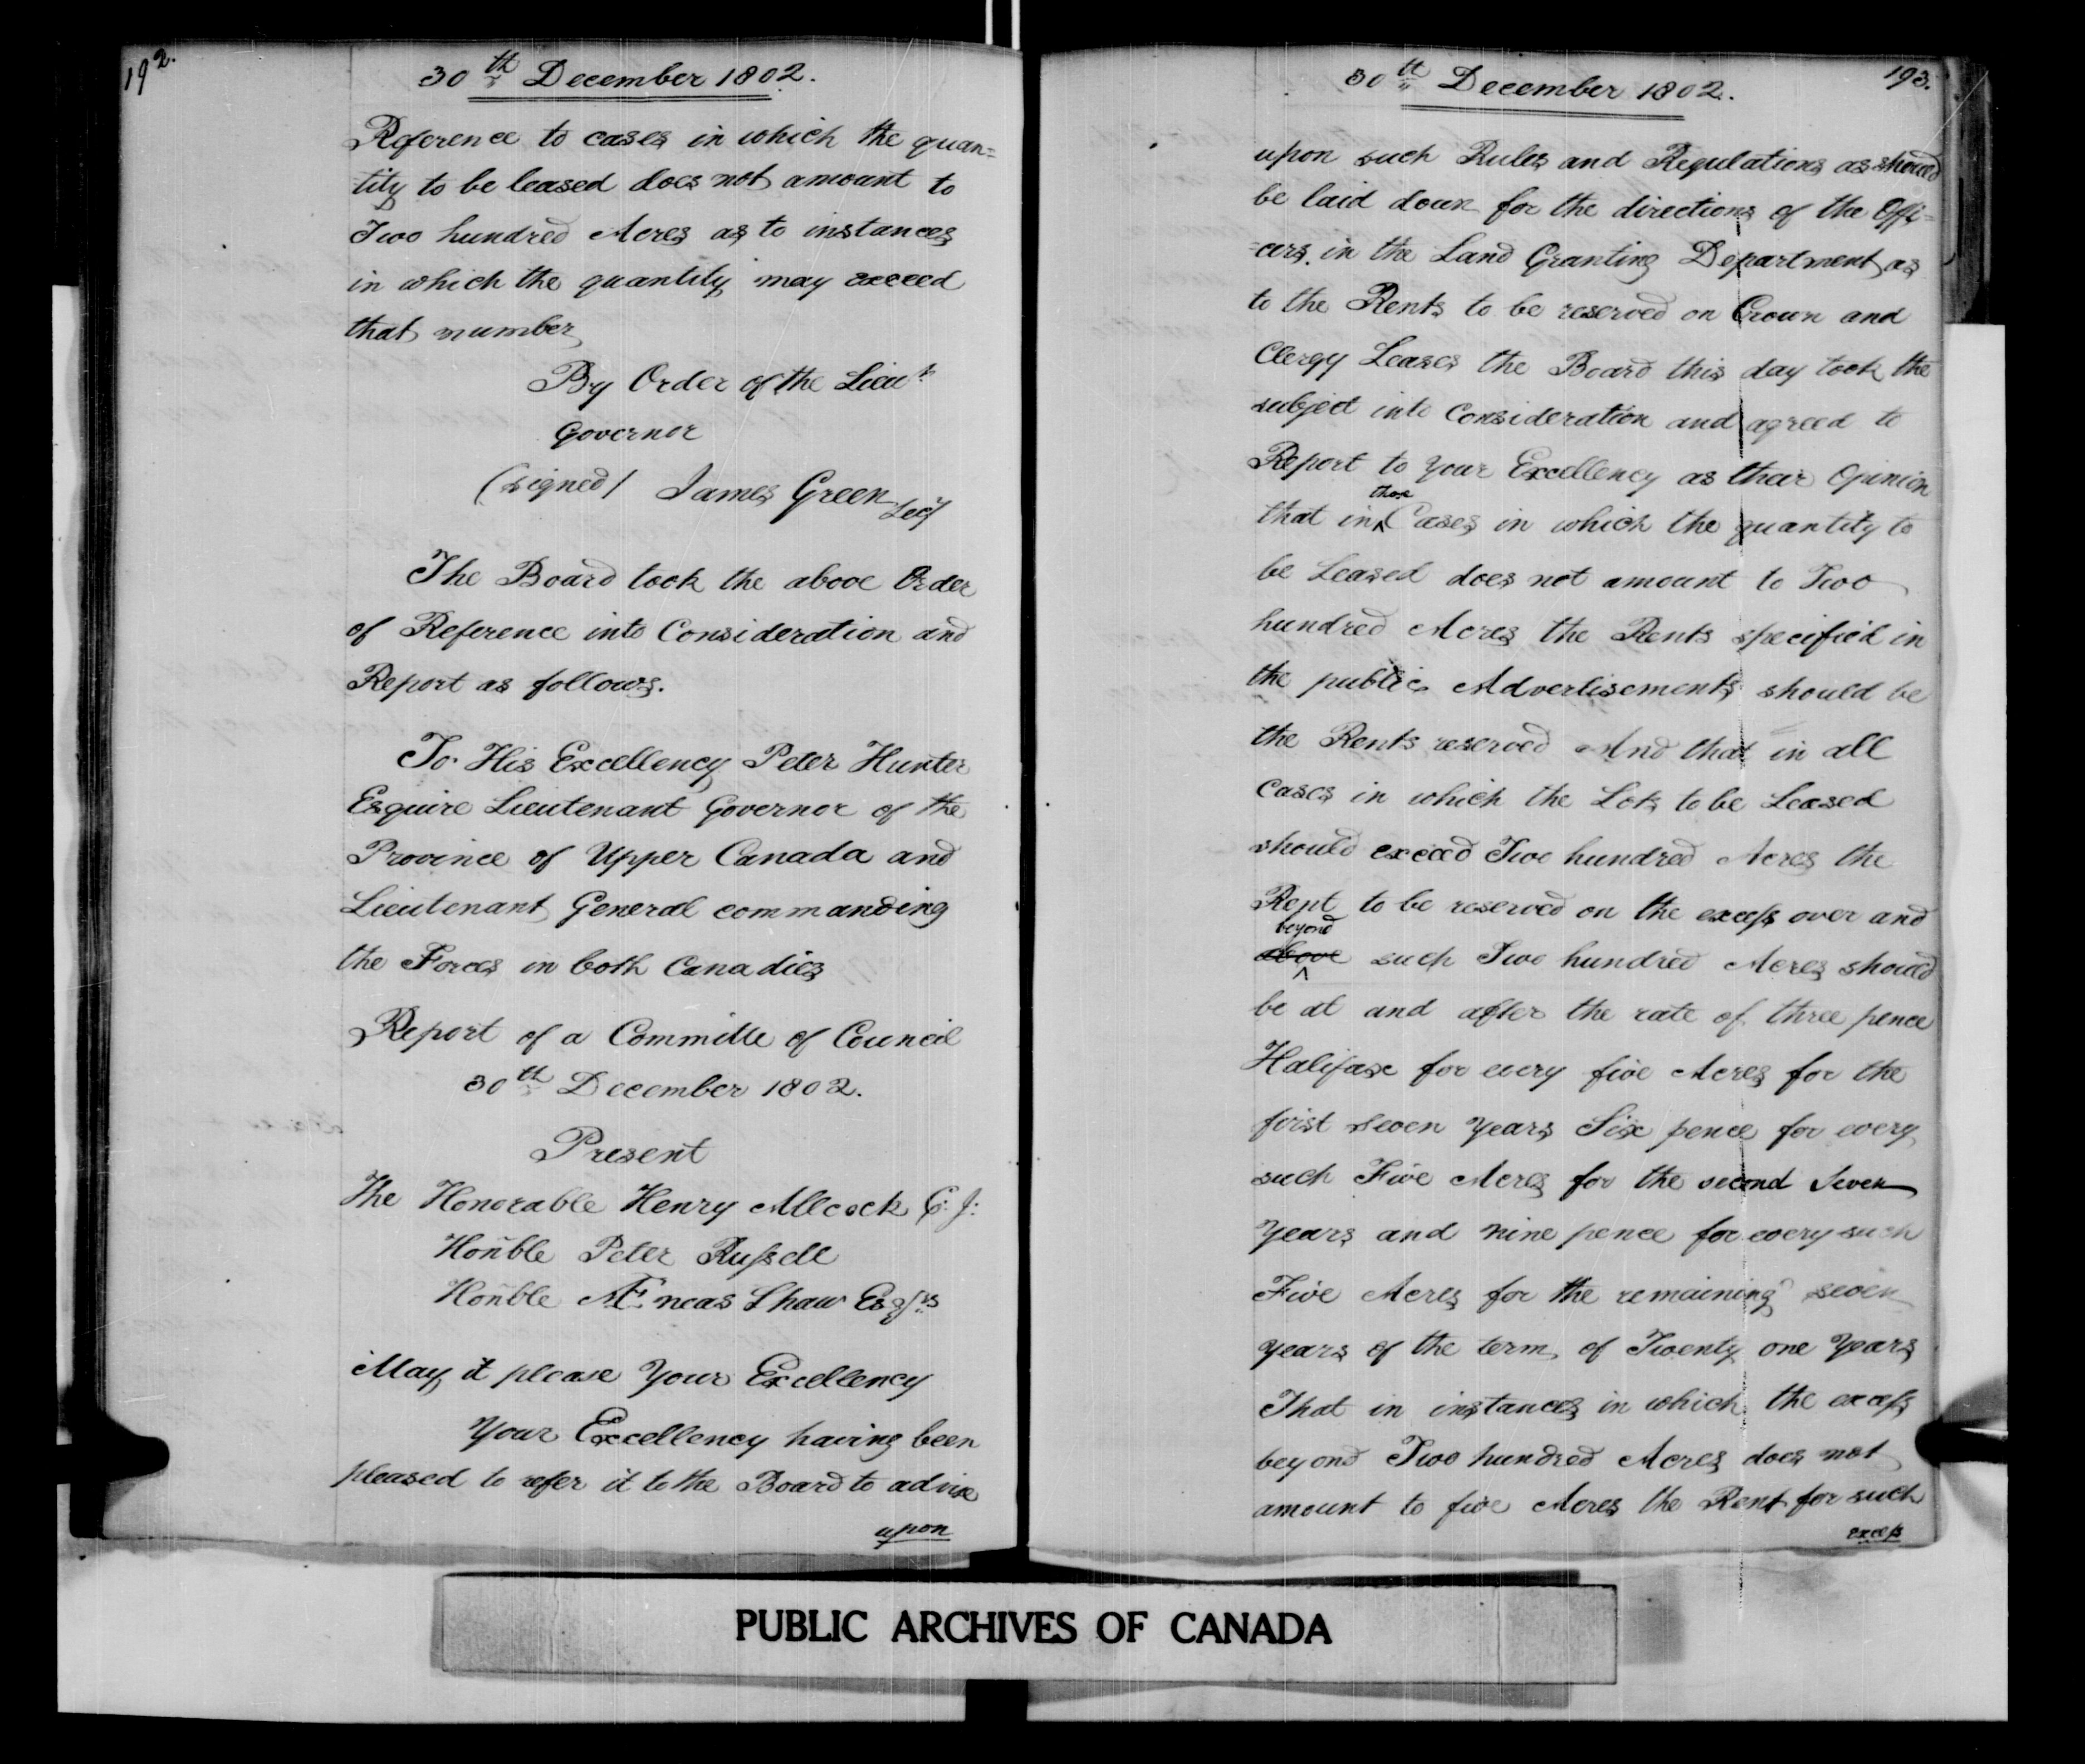 192.
30th December 1802.
Reference to cases in which the quan=
tity to be leased does not amount to
Two hundred Acres as to instances
in which the quantity may exceed
that number
By Order of the Lieut
Governor
(signed) James Green
Secy
The Board took the above Order
of Reference into Consideration and
Report as follows.
To His Excellency Peter Hunter
Esquire Lieutenant Governor of the
Province of Upper Canada and
Lieutenant General commanding
the Forces in both Canadies
Report of a Committe of Council
30th December 1802.
Present
The Honorable Henry Allcock C. J:
Honble Peter Russell
Honble Æneas Shaw Esqrs
May it please Your Excellency
Your Excellency having been
pleased to refer it to the Board to advise
upon
193.
30th December 1802.
upon such Rules and Regulations as should
be laid down for the directions of the Offi=
=cers in the Land Granting Department as
to the Rents to be reserved on Crown and
Clergy Leases the Board this day took the
subject into Consideration and agreed to
Report to Your Excellency as their Opinion
that in those Cases in which the quantity to
be Leased does not amount to Two
hundred Acres the Rents specified in
the public Advertisements should be
the Rents reserved And that in all
Cases in which the Lots to be Leased
should exceed Two hundred Acres the
Rent to be reserved on the excess over and
beyond
above such Two hundred Acres should
be at and after the rate of three pence
Halifax for every five Acres for the
first seven Years Six pence for every
such Five Acres for the second Seven
Years and nine pence for every such
Five Acres for the remaining seven
years of the term of Twenty one Years
That in instances in which the excess
beyond Two hundred Acres does not
amount to five Acres the Rent for such
excess
PUBLIC ARCHIVES OF CANADA